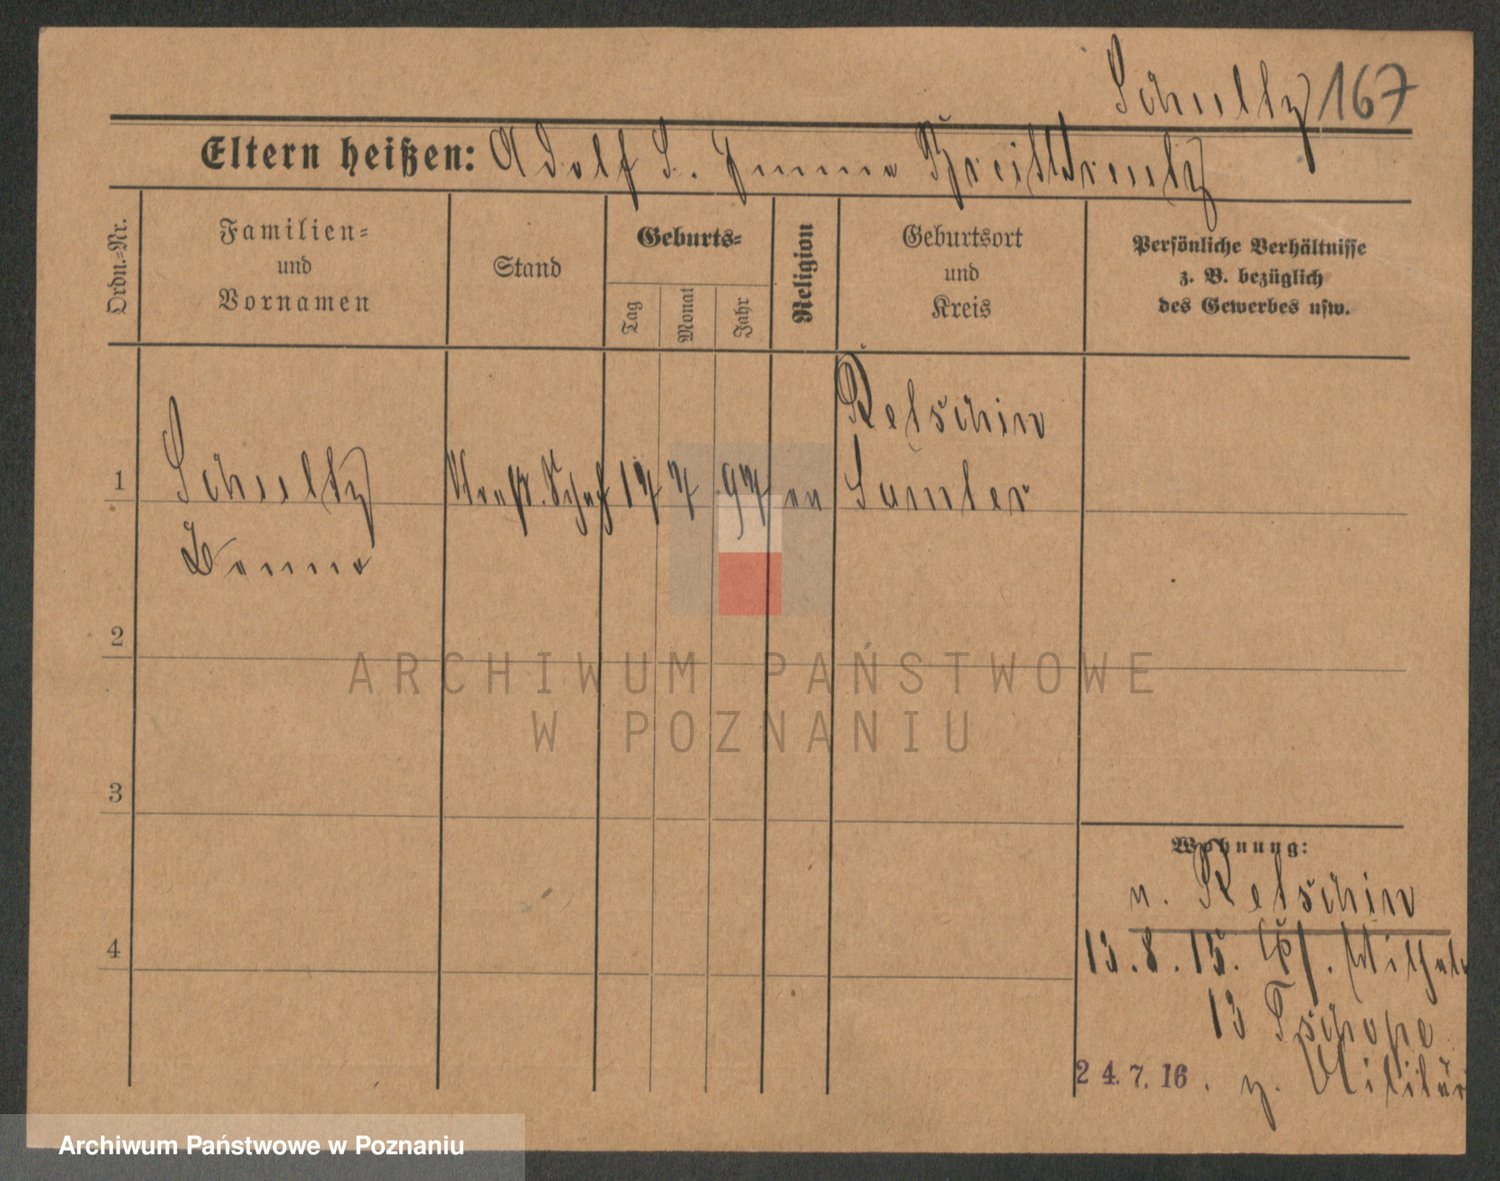 Schultz 167
Eltern heißen: Adolf S. Emma
Ordn.-Nr.
Familien-
und
Vornamen
Stand
Geburts-
Tag
Monat
Jahr
Religion
Geburtsort
und
Kreis
Persönliche Verhältnisse
z. B. bezüglich
des Gewerbes usw.
Retschin
1 Schultz 17 7 97 ev Samter
Benno
2
ARCHIWUM PAŃSTWOWE
W POZNANIU
3
Wohnung:
n. Retschin
4
13.8.15. Wilhelm
13 Tschope
24.7.16. z. Militär
Archiwum Państwowe w Poznaniu